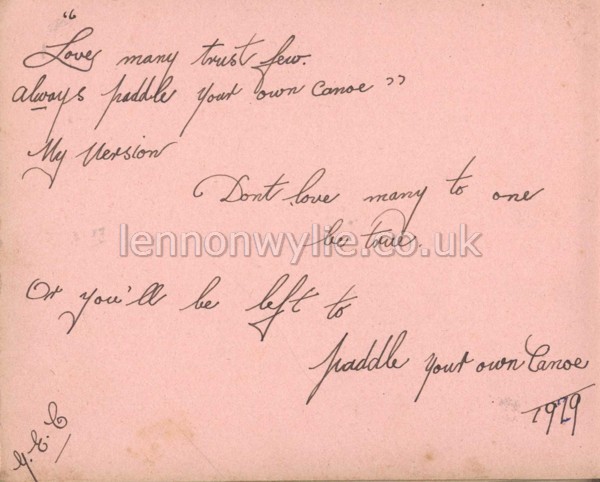 "Love many trust few.
always paddle your own canoe"
My Version
Dont love many to one
be true.
lennonwylie.co.uk
Or you'll be left to
paddle your own Canoe
1929